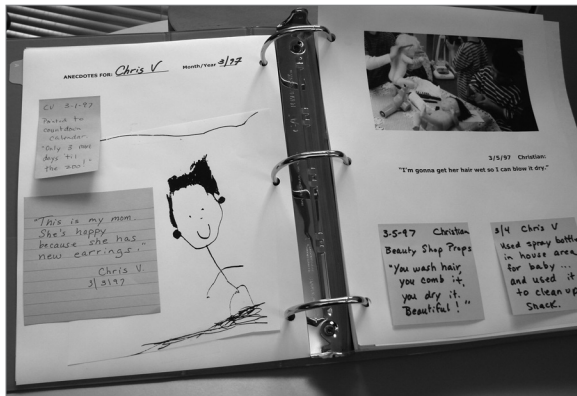 ANECDOTES FOR: Chris V Month/Year 3/97
CV 3-1-97
Pointed to
countdown
calendar.
"Only 3 more
days til
the zoo!"
"This is my mom.
She's happy
because she has
new earrings."
Chris V
3/3/97
3/5/97 Christian:
"I'm gonna get her hair wet so I can blow it dry."
3-5-97 Christian
Beauty Shop Props
"You wash hair,
you comb it,
you dry it.
Beautiful!"
3/4 Chris V
Used spray bottle
in house area
for baby ...
and used it
to clean up
snack.